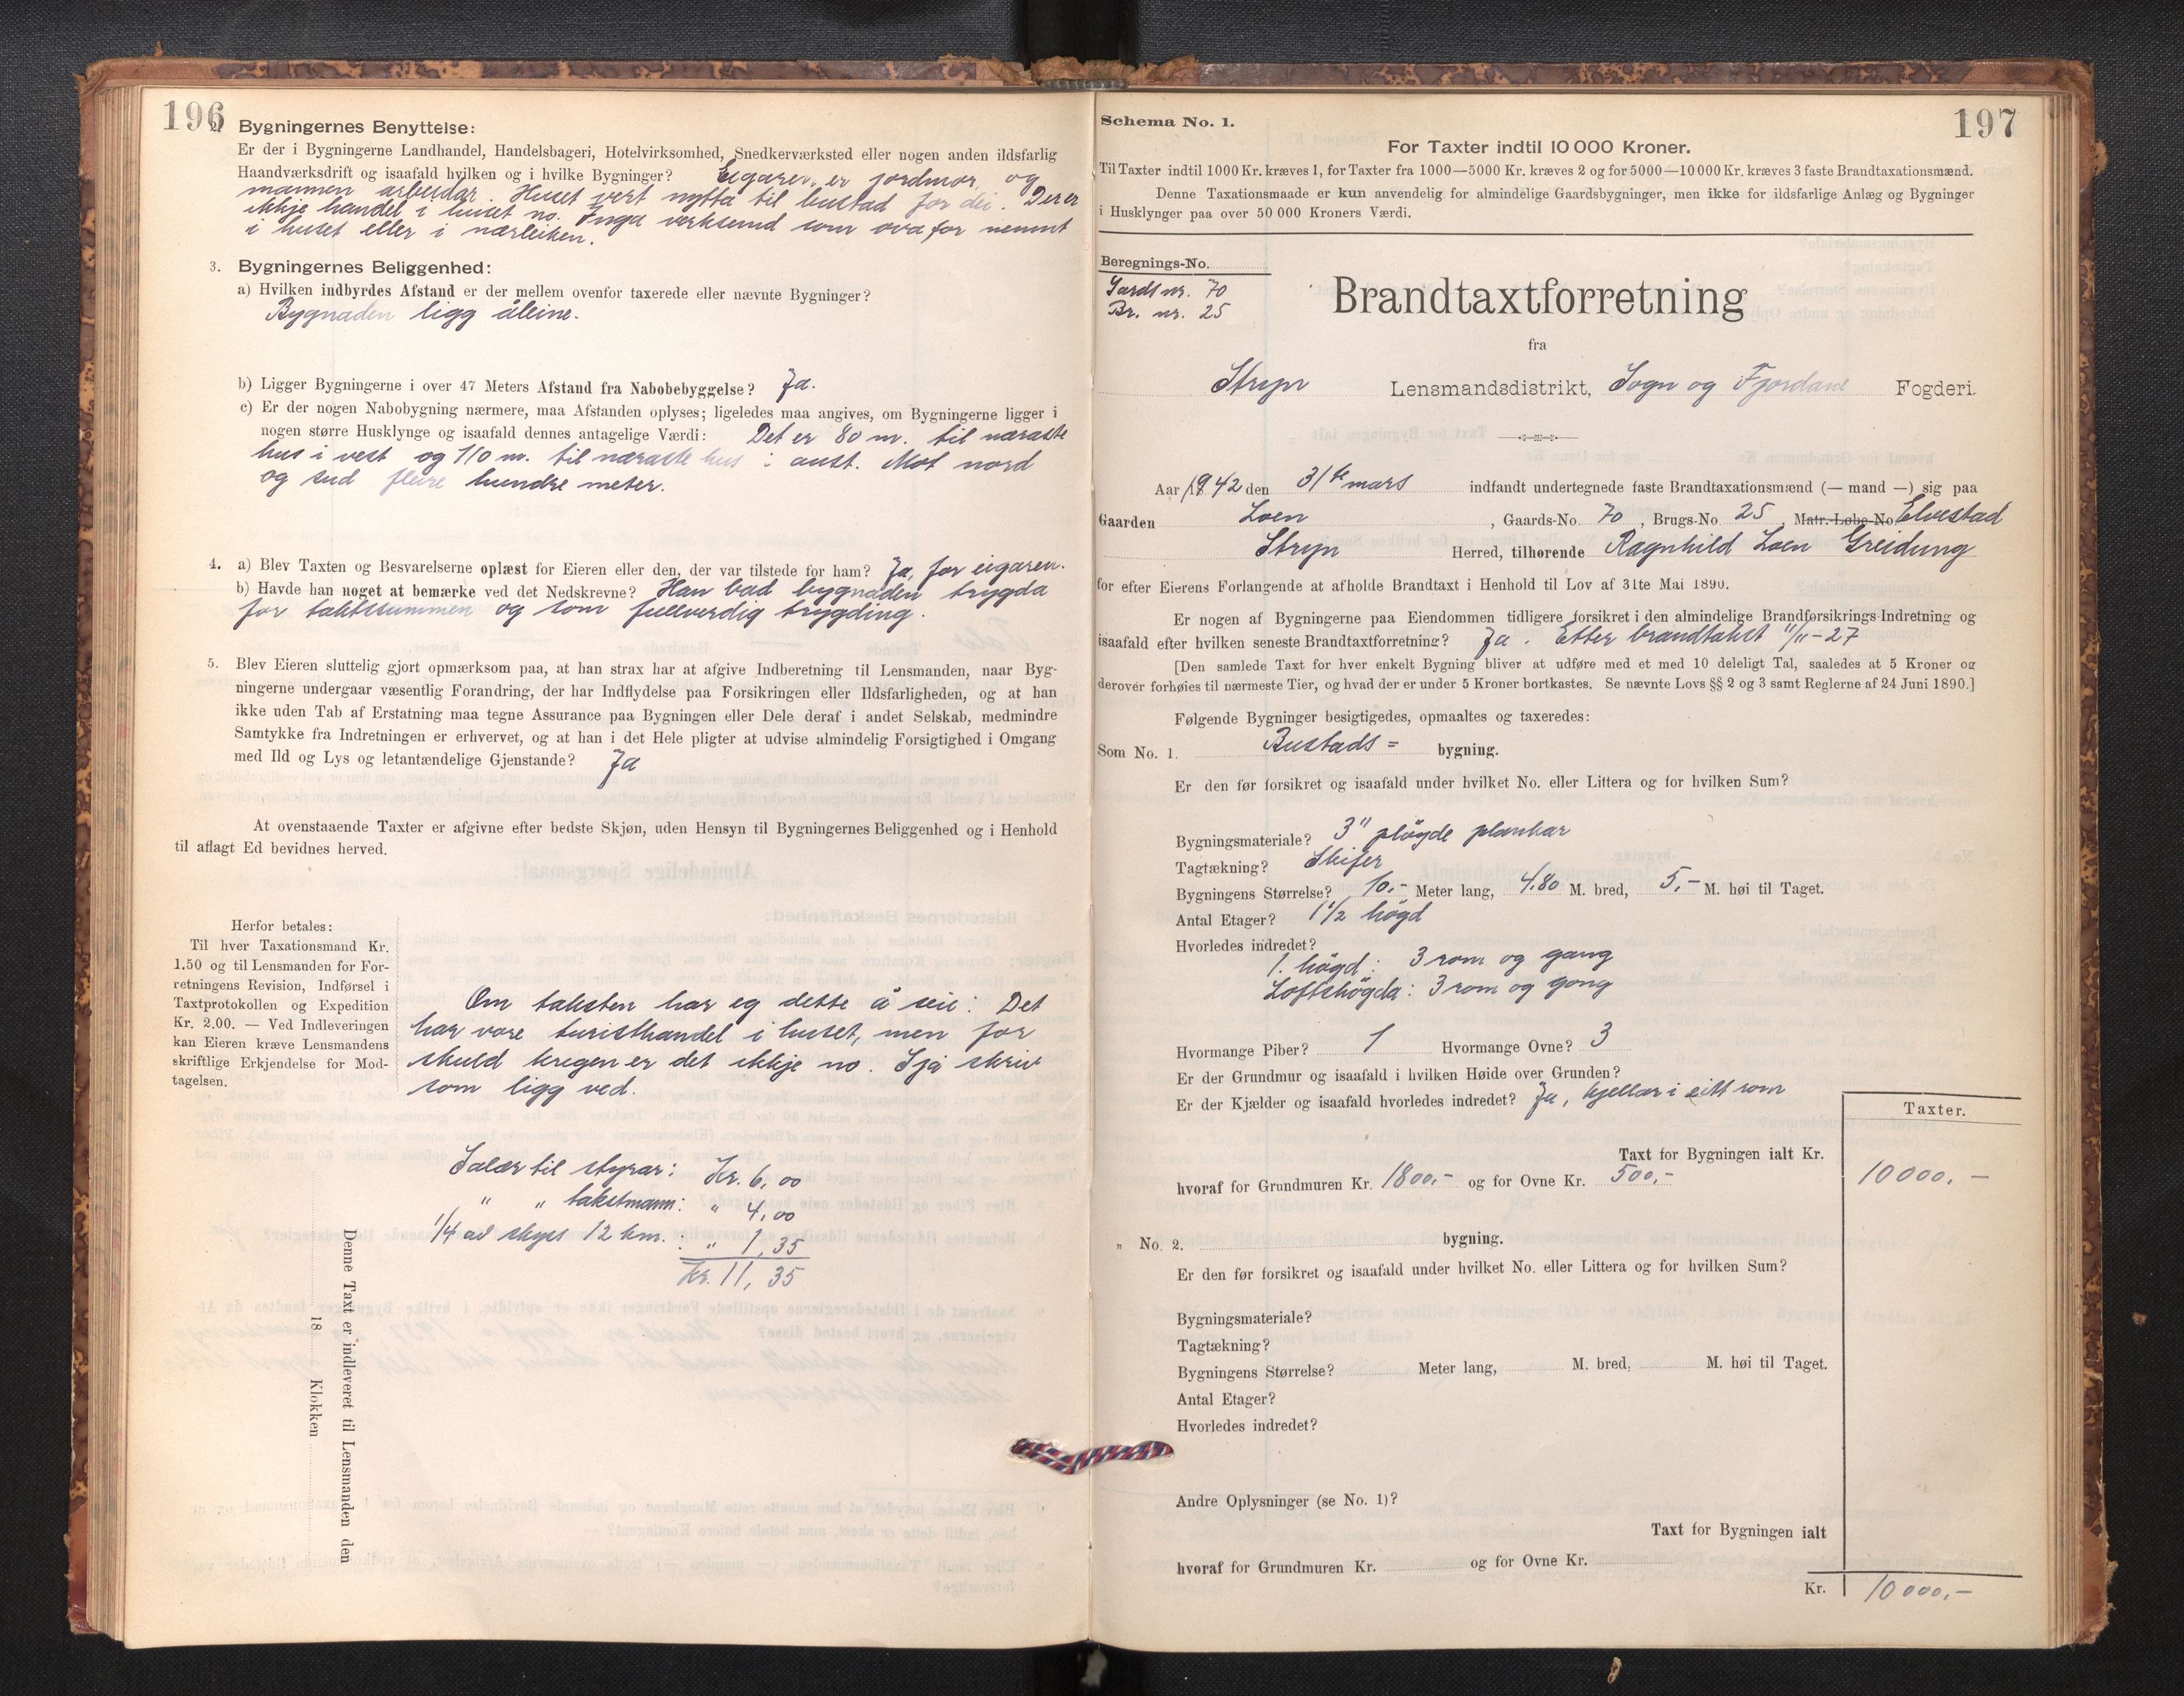 196
2. Bygningernes Benyttelse:
Er der i Bygningerne Landhandel, Handelsbageri, Hotelvirksomhed, Snedkerværksted eller nogen anden ildsfarlig
Haandværksdrift og isaafald hvilken og i hvilke Bygninger? Eigaren er jordmor, og
mannen arbeidar. Huset vert nytta til bustad for dei. Der er
ikkje handel i huset no. Inga verksemd som ova for nemnt
i huset eller i nærleiken.
3. Bygningernes Beliggenhed:
a) Hvilken indbyrdes Afstand er der mellem ovenfor taxerede eller nævnte Bygninger?
Bygnaden ligg åleine.
b) Ligger Bygningerne i over 47 Meters Afstand fra Nabobebyggelse? Ja.
c) Er der nogen Nabobygning nærmere, maa Afstanden oplyses; ligeledes maa angives, om Bygningerne ligger i
nogen større Husklynge og isaafald dennes antagelige Værdi: Det er 80 m. til næraste
hus i vest og 110 m. til næraste hus i aust. Mot nord
og sud fleire hundre meter.
4. a) Blev Taxten og Besvarelserne oplæst for Eieren eller den, der var tilstede for ham? Ja, for eigaren.
b) Havde han noget at bemærke ved det Nedskrevne? Han bad bygnaden trygda
for takstsummen og som fullverdig trygding.
5. Blev Eieren sluttelig gjort opmærksom paa, at han strax har at afgive Indberetning til Lensmanden, naar Byg-
ningerne undergaar væsentlig Forandring, der har Indflydelse paa Forsikringen eller Ildsfarligheden, og at han
ikke uden Tab af Erstatning maa tegne Assurance paa Bygningen eller Dele deraf i andet Selskab, medmindre
Samtykke fra Indretningen er erhvervet, og at han i det Hele pligter at udvise almindelig Forsigtighed i Omgang
med Ild og Lys og letantændelige Gjenstande? Ja
At ovenstaaende Taxter er afgivne efter bedste Skjøn, uden Hensyn til Bygningernes Beliggenhed og i Henhold
til aflagt Ed bevidnes herved.
Herfor betales:
Til hver Taxationsmand Kr.
1.50 og til Lensmanden for For-
retningens Revision, Indførsel i
Taxtprotokollen og Expedition
Kr. 2.00. — Ved Indleveringen
kan Eieren kræve Lensmandens
skriftlige Erkjendelse for Mod-
tagelsen.
Om taksten har eg dette å seie: Det
har vore turisthandel i huset, men for
skuld krigen er det ikkje no. Sjå skriv
som ligg ved.
Salær til styrar: Kr. 6,00
" " takstmann: " 4,00
1/4 av skyss 12 km. : " 1,35
Kr. 11,35
Denne Taxt er indleveret til Lensmanden den
18 Klokken
197
Schema No. 1.
For Taxter indtil 10 000 Kroner.
Til Taxter indtil 1000 Kr. kræves 1, for Taxter fra 1000—5000 Kr. kræves 2 og for 5000—10000 Kr. kræves 3 faste Brandtaxationsmænd.
Denne Taxationsmaade er kun anvendelig for almindelige Gaardsbygninger, men ikke for ildsfarlige Anlæg og Bygninger
i Husklynger paa over 50 000 Kroners Værdi.
Beregnings-No.
Gardsnr. 70
Br. nr. 25
Brandtaxtforretning
fra
Stryn Lensmandsdistrikt, Sogn og Fjordane Fogderi.
Aar 1942 den 31te mars indfandt undertegnede faste Brandtaxationsmænd (— mand —) sig paa
Gaarden Loen, Gaards-No. 70, Brugs-No. 25, Matr.-Løbe-No Elvestad
Stryn Herred, tilhørende Ragnhild Loen Greidung
for efter Eierens Forlangende at afholde Brandtaxt i Henhold til Lov af 31te Mai 1890.
Er nogen af Bygningerne paa Eiendommen tidligere forsikret i den almindelige Brandforsikrings-Indretning og
isaafald efter hvilken seneste Brandtaxtforretning? Ja. Etter brandtakst 11/11-27
[Den samlede Taxt for hver enkelt Bygning bliver at udføre med et med 10 deleligt Tal, saaledes at 5 Kroner og
derover forhøies til nærmeste Tier, og hvad der er under 5 Kroner bortkastes. Se nævnte Lovs §§ 2 og 3 samt Reglerne af 24 Juni 1890.]
Følgende Bygninger besigtigedes, opmaaltes og taxeredes:
Som No. 1. Bustads= bygning.
Er den før forsikret og isaafald under hvilket No. eller Littera og for hvilken Sum?
Bygningsmateriale? 3" pløgde plankar
Tagtækning? Skifer
Bygningens Størrelse? 10,- Meter lang, 4,80 M. bred, 5,- M. høi til Taget.
Antal Etager? 1 1/2 høgd
Hvorledes indredet?
1. høgd: 3 rom og gang
Loftshøgda: 3 rom og gong
Hvormange Piber? 1 Hvormange Ovne? 3
Er der Grundmur og isaafald i hvilken Høide over Grunden?
Er der Kjælder og isaafald hvorledes indredet? Ja, kjellar i eitt rom
Taxter.
Taxt for Bygningen ialt Kr.
hvoraf for Grundmuren Kr. 1800,- og for Ovne Kr. 500,- 10000,-
" No. 2. bygning.
Er den før forsikret og isaafald under hvilket No. eller Littera og for hvilken Sum?
Bygningsmateriale?
Tagtækning?
Bygningens Størrelse? Meter lang, M. bred, M. høi til Taget.
Antal Etager?
Hvorledes indredet?
Andre Oplysninger (se No. 1)?
Taxt for Bygningen ialt
hvoraf for Grundmuren Kr. og for Ovne Kr.
Kr. 10000,-